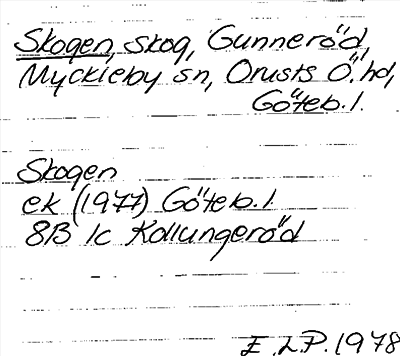 Skogen, skog, Gunneröd,
Myckleby sn, Orusts Ö. hd,
Göteb. l.
Skogen
ek (1977) Göteb. l.
8B 1c Kollungeröd
E. L.P. 1978